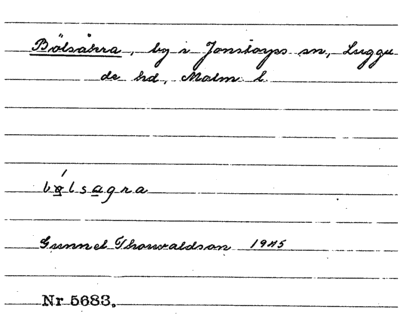 Bölsåkra, by i Jonstorps sn, Luggu
de hd, Malm. l.
bølsagra
Gunnel Thorvaldson 1945
Nr 5683.